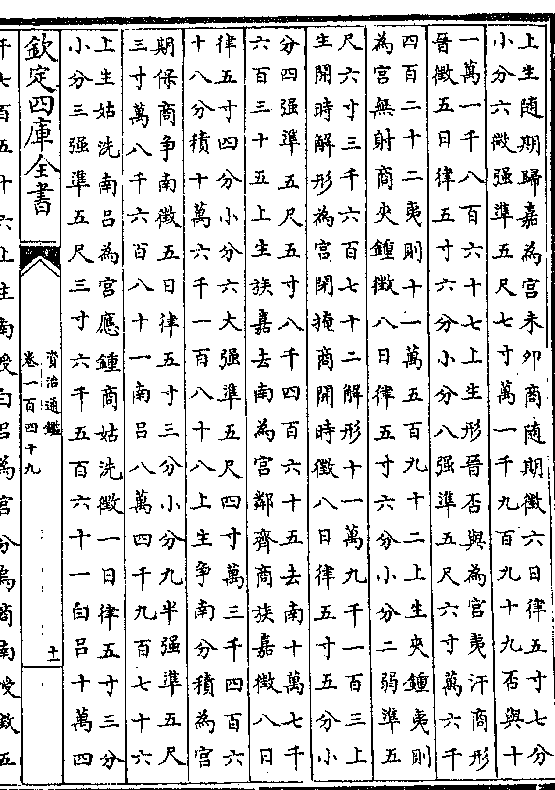 上生隨期歸嘉為宫未卯商隨期徴六日律五寸七分
小分六微强準五尺七寸萬一千九百九十九否與十
一萬一千八百六十七上生形晉否與為宫夷汗商形
晉徴五日律五寸六分小分八强準五尺六寸萬六千
四百二十二夷則十一萬五百九十二上生夾鍾夷則
為宫無射商夾鍾徴八日律五寸六分小分二弱準五
尺六寸三千六百七十二解形十一萬九千一百三上
生開時解形為宫閉掩商開時徴八日律五寸五分小
分四强準五尺五寸八千四百六十五去南十萬七千
六百三十五上生族嘉去南為宫鄰齊商族嘉徴八日
律五寸四分小分六大强準五尺四寸萬三千四百六
十八分積十萬六千一百八十八上生爭南分積為宫
期保商爭南徴五日律五寸三分小分九半强準五尺
三寸萬八千六百八十一南吕八萬四千九百七十六
上生姑洗南吕為宫應鍾商姑洗徴一日律五寸三分
小分三强準五尺三寸六千五百六十一白吕十萬四
欽定四庫全書
資治通鑑
卷一百四十九
十一
千七百五十六上生南授白吕為宫分烏商南授徴五